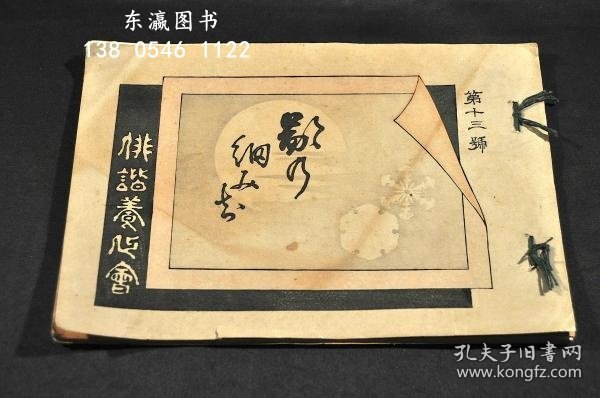 东瀛图书
138 0546 1122
第十三號
歌の
細みち
俳諧養心會
孔夫子旧书网
www.kongfz.com